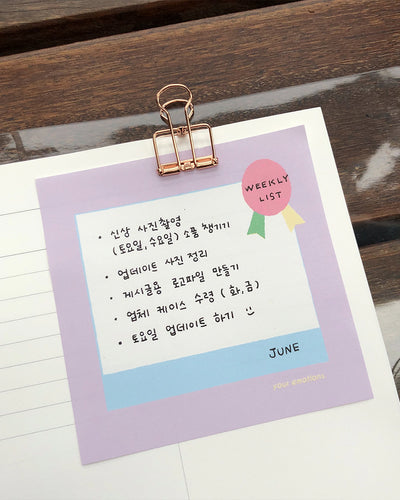 WEEKLY
LIST
• 신상 사진촬영
(토요일, 수요일) 소품 챙기기
• 업데이트 사진 정리
• 게시글용 로고파일 만들기
• 업체 케이스 수령 (화,금)
• 토요일 업데이트 하기 ☺
JUNE
your emotions